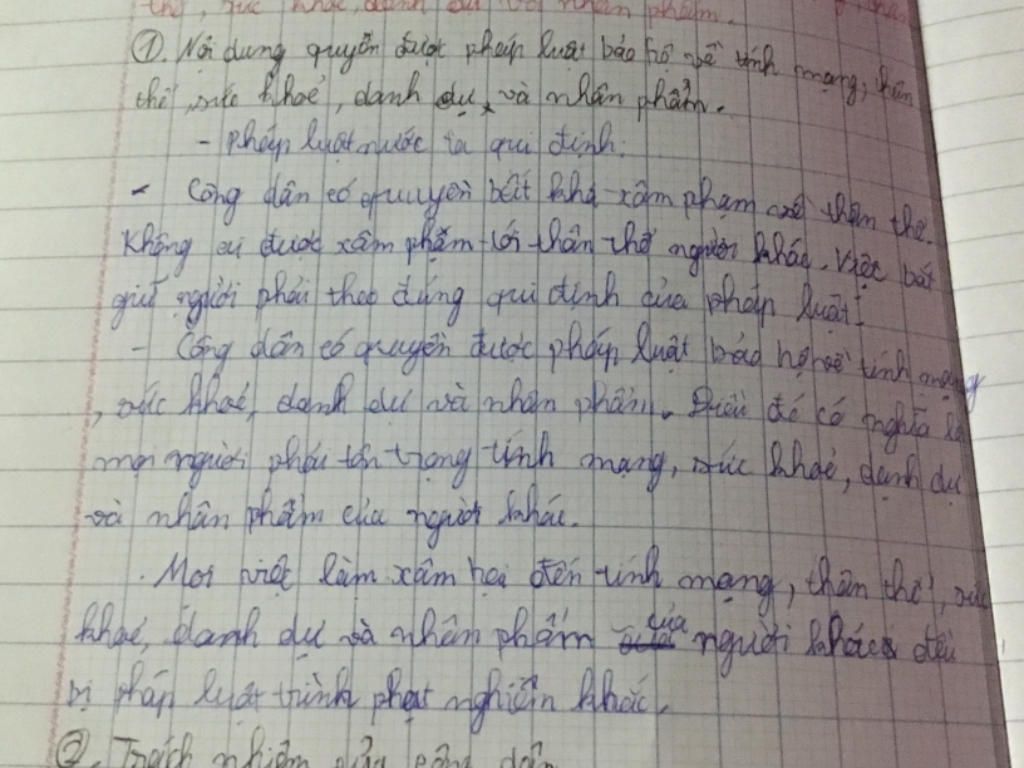 thể, sức khoẻ, danh dự và nhân phẩm.
①. Nội dung quyền được pháp luật bảo hộ về tính mạng, thân
thể, sức khoẻ, danh dự, và nhân phẩm.
- Pháp luật nước ta qui định:
- Công dân có quyền bất khả xâm phạm về thân thể.
Không ai được xâm phạm tới thân thể người khác. Việc bắt
giữ người phải theo đúng qui định của pháp luật.
- Công dân có quyền được pháp luật bảo hộ về tính mạng
, sức khoẻ, danh dự và nhân phẩm. Điều đó có nghĩa là
mọi người phải tôn trọng tính mạng, sức khoẻ, danh dự
và nhân phẩm của người khác.
. Mọi việc làm xâm hại đến tính mạng, thân thể, sức
khoẻ, danh dự và nhân phẩm của người khác đều
bị pháp luật trừng phạt nghiêm khắc.
②. Trách nhiệm của công dân